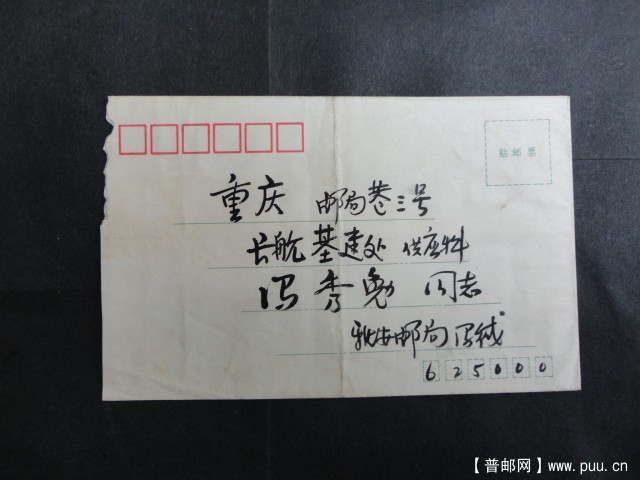 贴邮票
重庆 邮局巷三号
长航基建处 供应科
冯秀勇 同志
雅安邮局冯缄
625000
【普邮网】www.puu.cn